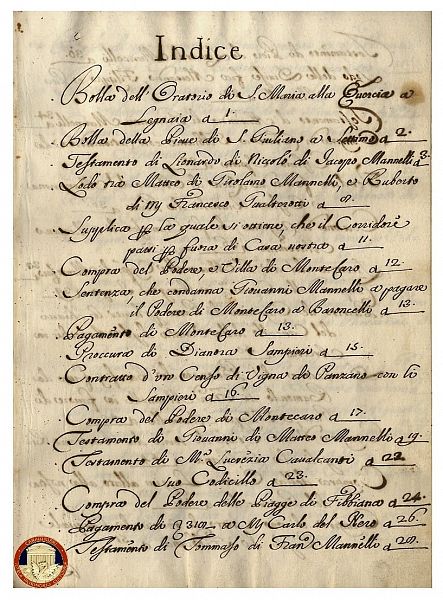 Indice
Bolla dell' Oratorio di S. Maria alla Quercia a
Legnaia a 1.
Bolla della Pieve di S. Giuliano a Settimo a 2.
Testamento di Lionardo di Niccolò di Jacopo Mannelli a 3.
Lodo tra Matteo di Girolamo Mannelli, e Ruberto
di Francesco Gualterotti a 8.
Supplica per la quale si ottiene, che il Corridore
passi per fuora di Casa nostra a 11.
Compra del Podere, e Villa di MonteCaro a 12.
Sentenza, che condanna Giovanni Mannelli a pagare
il Podere di MonteCaro a Baroncelli a 13.
Pagamento di MonteCaro a 13.
Procura di Dianora Sampieri a 15.
Contratto d'vn Censo di Vigna da Panzano con li
Sampieri a 16.
Compra del Podere di Montecaro a 17.
Testamento di Giovanni di Matteo Mannelli a 19.
Testamento di M.ª Lucrezia Cavalcanti a 22.
Suo Codicillo a 23.
Compra del Podere delle Piagge di Fibbiana a 24.
Pagamento di a Carlo del Nero a 26.
Testamento di Tommaso di Fran.º Mannelli a 28.